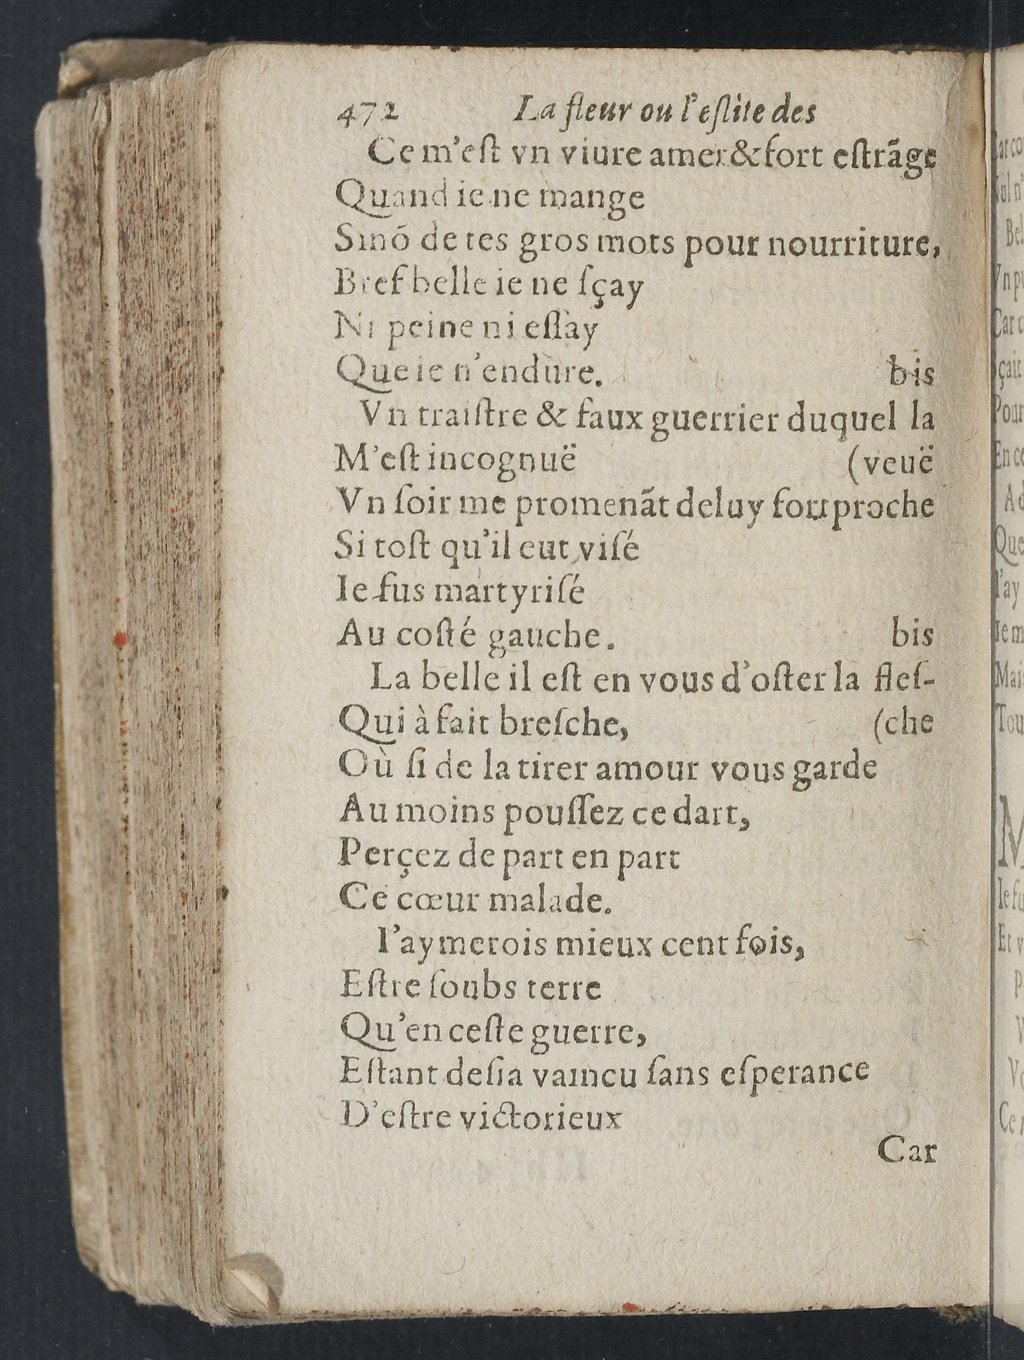 472 La fleur ou l'eſlite des
Ce m'eſt vn viure amer & fort eſtrãge
Quand ie ne mange
Sinõ de tes gros mots pour nourriture,
Bref belle ie ne ſçay
Ni peine ni eſſay
Que ie n'endure. bis
Vn traiſtre & faux guerrier duquel la
M'eſt incognuë (veuë
Vn ſoir me promenãt de luy fort proche
Si toſt qu'il eut viſé
Ie fus martyriſé
Au coſté gauche. bis
La belle il eſt en vous d'oſter la fleſ-
Qui à fait breſche, (che
Où ſi de la tirer amour vous garde
Au moins pouſſez ce dart,
Perçez de part en part
Ce cœur malade.
I'aymerois mieux cent fois,
Eſtre ſoubs terre
Qu'en ceſte guerre,
Eſtant deſia vaincu ſans eſperance
D'eſtre victorieux
Car